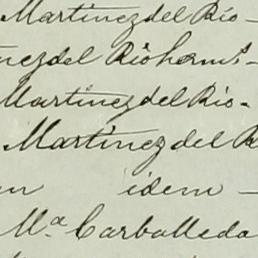 Martinez del Rio-
nez del Rio herms-
Martinez del Rio-
Martinez del R
idem -
Ma Carballeda